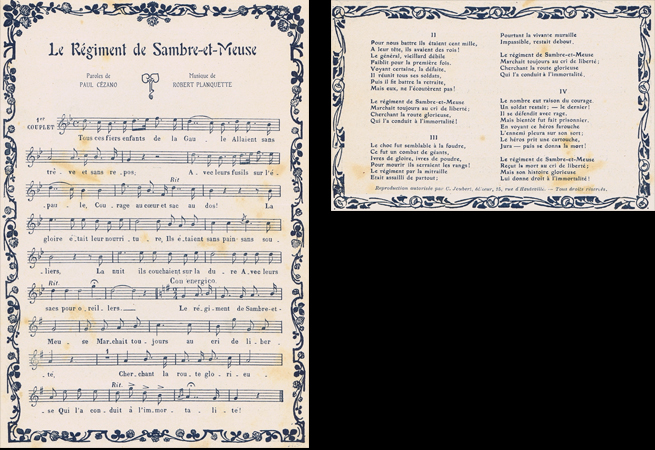 Le Régiment de Sambre-et-Meuse
Paroles de
PAUL CÉZANO
Musique de
ROBERT PLANQUETTE
1er
COUPLET
Tous ces fiers enfants de la Gau . le Allaient sans
trê . ve et sans re . pos; A . vec leurs fusils sur l'é .
Rit
. pau . le, Cou . rage au cœur et sac au dos! La
gloire é . tait leur nourri . tu . re, Ils é . taient sans pain sans sou .
. liers, La nuit ils couchaient sur la du . re A . vec leurs
Rit. Con energico.
sacs pour o . reil . lers. Le ré . gi . ment de Sambre-et-
Meu . se Mar . chait tou . jours au cri de li . ber .
1
. té, Cher . chant la rou . te glo . ri . eu .
Rit.
. se Qui l'a con . duit à l'im . mor . ta . li . té!
II
Pour nous battre ils étaient cent mille,
A leur tête, ils avaient des rois!
Le général, vieillard débile
Faiblit pour la première fois.
Voyant certaine, la défaite,
Il réunit tous ses soldats,
Puis il fit battre la retraite,
Mais eux, ne l'écoutèrent pas!
Le régiment de Sambre-et-Meuse
Marchait toujours au cri de liberté;
Cherchant la route glorieuse,
Qui l'a conduit à l'immortalité!
III
Le choc fut semblable à la foudre,
Ce fut un combat de géants,
Ivres de gloire, ivres de poudre,
Pour mourir ils serraient les rangs!
Le régiment par la mitraille
Était assailli de partout;
Pourtant la vivante muraille
Impassible, restait debout.
Le régiment de Sambre-et-Meuse
Marchait toujours au cri de liberté;
Cherchant la route glorieuse
Qui l'a conduit à l'immortalité.
IV
Le nombre eut raison du courage.
Un soldat restait: — le dernier!
Il se défendit avec rage,
Mais bientôt fut fait prisonnier.
En voyant ce héros farouche
L'ennemi pleura sur son sort;
Le héros prit une cartouche,
Jura — puis se donna la mort!
Le régiment de Sambre-et-Meuse
Reçut la mort au cri de liberté;
Mais son histoire glorieuse
Lui donne droit à l'immortalité!
Reproduction autorisée par C. Joubert, éditeur, 25, rue d'Hauteville. — Tous droits réservés.